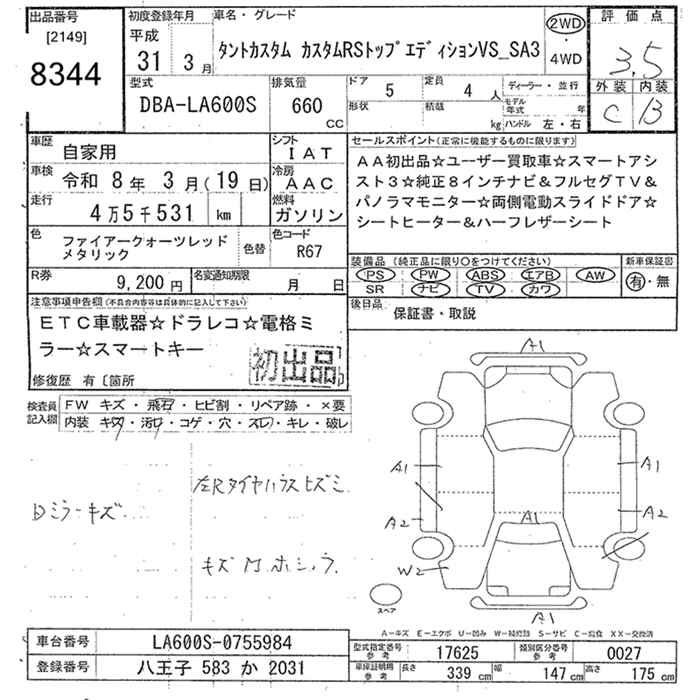 出品番号
[2149]
8344
初度登録年月
平成
31年 3月
車名・グレード
タントカスタム カスタムRSトップエディションVS_SA3
2WD
・
4WD
評価点
3.5
外装 内装
C B
型式
DBA-LA600S
排気量
660
CC
ドア
5
形状
定員
4 人
積載
kg
ディーラー・並行
モデル年式 年
ハンドル 左・右
車歴
自家用
シフト
IAT
車検
令和 8年 3月(19日)
冷房
AAC
走行
4万5千531 km
燃料
ガソリン
色
ファイアークォーツレッド
メタリック
色替
色コード
R67
R券
9,200円
名変通知期限
月 日
セールスポイント(正常に機能するものに限ります)
AA初出品☆ユーザー買取車☆スマートアシ
スト3☆純正8インチナビ&フルセグTV&
パノラマモニター☆両側電動スライドドア☆
シートヒーター&ハーフレザーシート
装備品(純正品に限り○をつけてください)
PS PW ABS エアB AW
SR ナビ TV カワ
新車保証書
有・無
後日品
保証書・取説
注意事項申告欄(不具合内容等は具体的に記入して下さい)
ETC車載器☆ドラレコ☆電格ミ
ラー☆スマートキー
初出品
修復歴 有〔箇所
検査員
記入欄
FW キズ・飛石・ヒビ割・リペア跡・×要
内装 キズ・汚れ・コゲ・穴・スレ・キレ・破レ
Dミラーキズ
A1
A1
A1
A2
A2
A1
W2
A1
スペア
A-キズ E-エクボ U-凹み W-補修跡 S-サビ C-腐食 XX-交換済
車台番号
LA600S-0755984
登録番号
八王子 583 か 2031
型式指定番号
参考
17625
類別区分番号
参考
0027
車庫証明用
参考
長さ 339 cm
幅 147 cm
高さ 175 cm